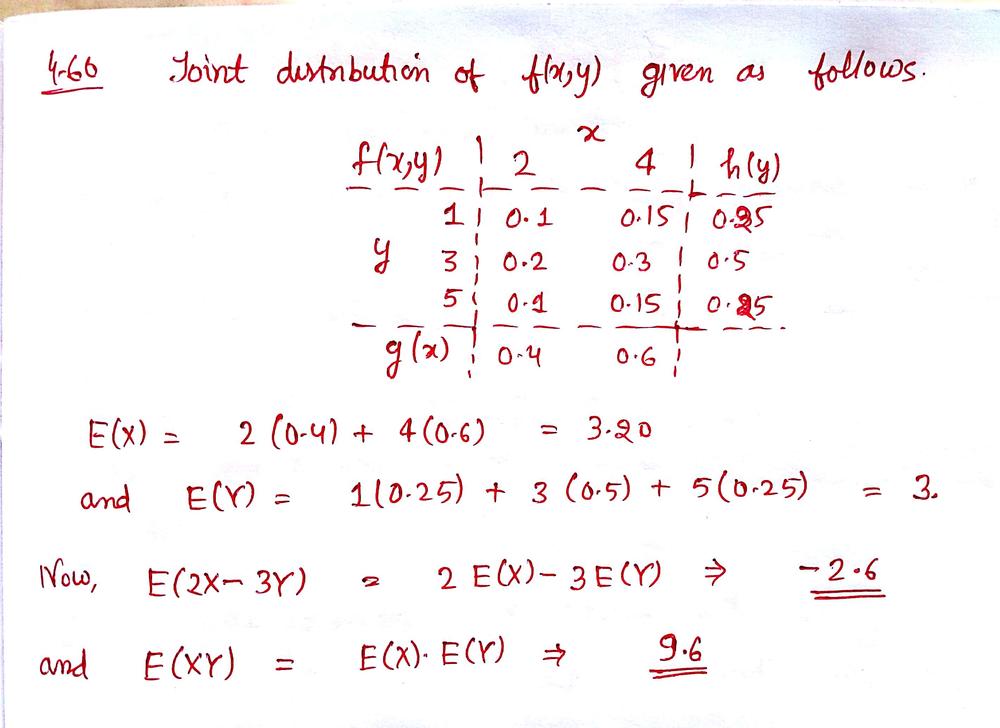 4-60 Joint distribution of f(x,y) given as follows.
x
f(x,y) 2 4 h(y)
1 0.1 0.15 0.25
y 3 0.2 0.3 0.5
5 0.1 0.15 0.25
g(x) 0.4 0.6
E(X) = 2(0.4) + 4(0.6) = 3.20
and E(Y) = 1(0.25) + 3(0.5) + 5(0.25) = 3.
Now, E(2X-3Y) = 2E(X)-3E(Y) ⇒ -2.6
and E(XY) = E(X)·E(Y) ⇒ 9.6